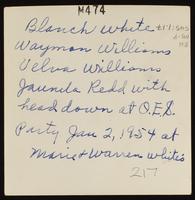 M474
Blanch White
Waymon Williams
Velva Williams
Jaunda Redd with
head down at O.E.S.
Party Jan 2, 1954 at
Marie & Warren White's
217